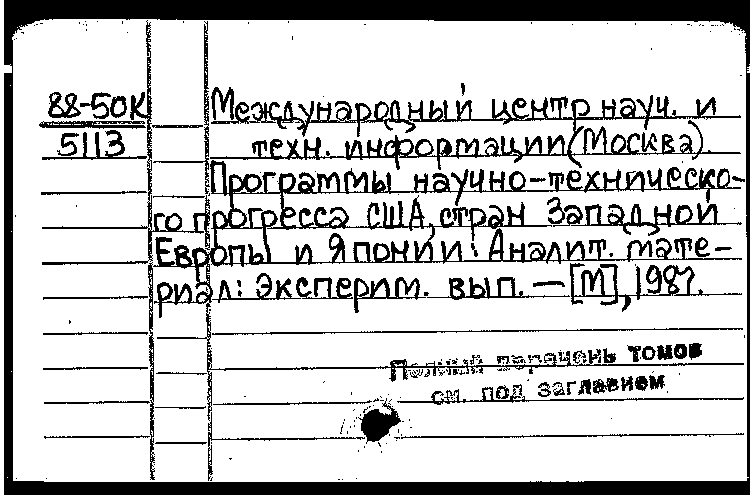 88-50К
5113
Международный центр науч. и
техн. информации (Москва).
Программы научно-техническо-
го прогресса США, стран Западной
Европы и Японии: Аналит. мате-
риал: Эксперим. вып. — [М], 1987.
Полный перечень томов
см. под заглавием